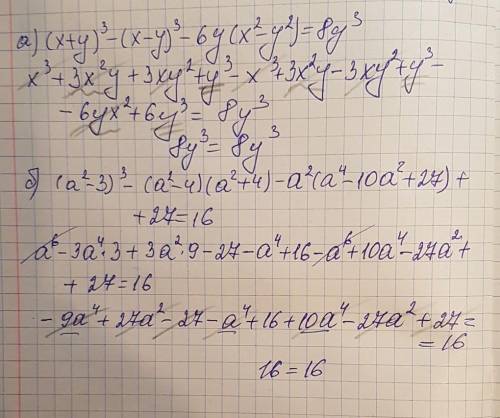 а) (x+y)³-(x-y)³-6y(x²-y²)=8y³
x³+3x²y+3xy²+y³-x³+3x²y-3xy²+y³-
-6yx²+6y³=8y³
8y³=8y³
б) (a²-3)³-(a²-4)(a²+4)-a²(a⁴-10a²+27)+
+27=16
a⁶-3a⁴·3+3a²·9-27-a⁴+16-a⁶+10a⁴-27a²+
+27=16
-9a⁴+27a²-27-a⁴+16+10a⁴-27a²+27=
=16
16=16